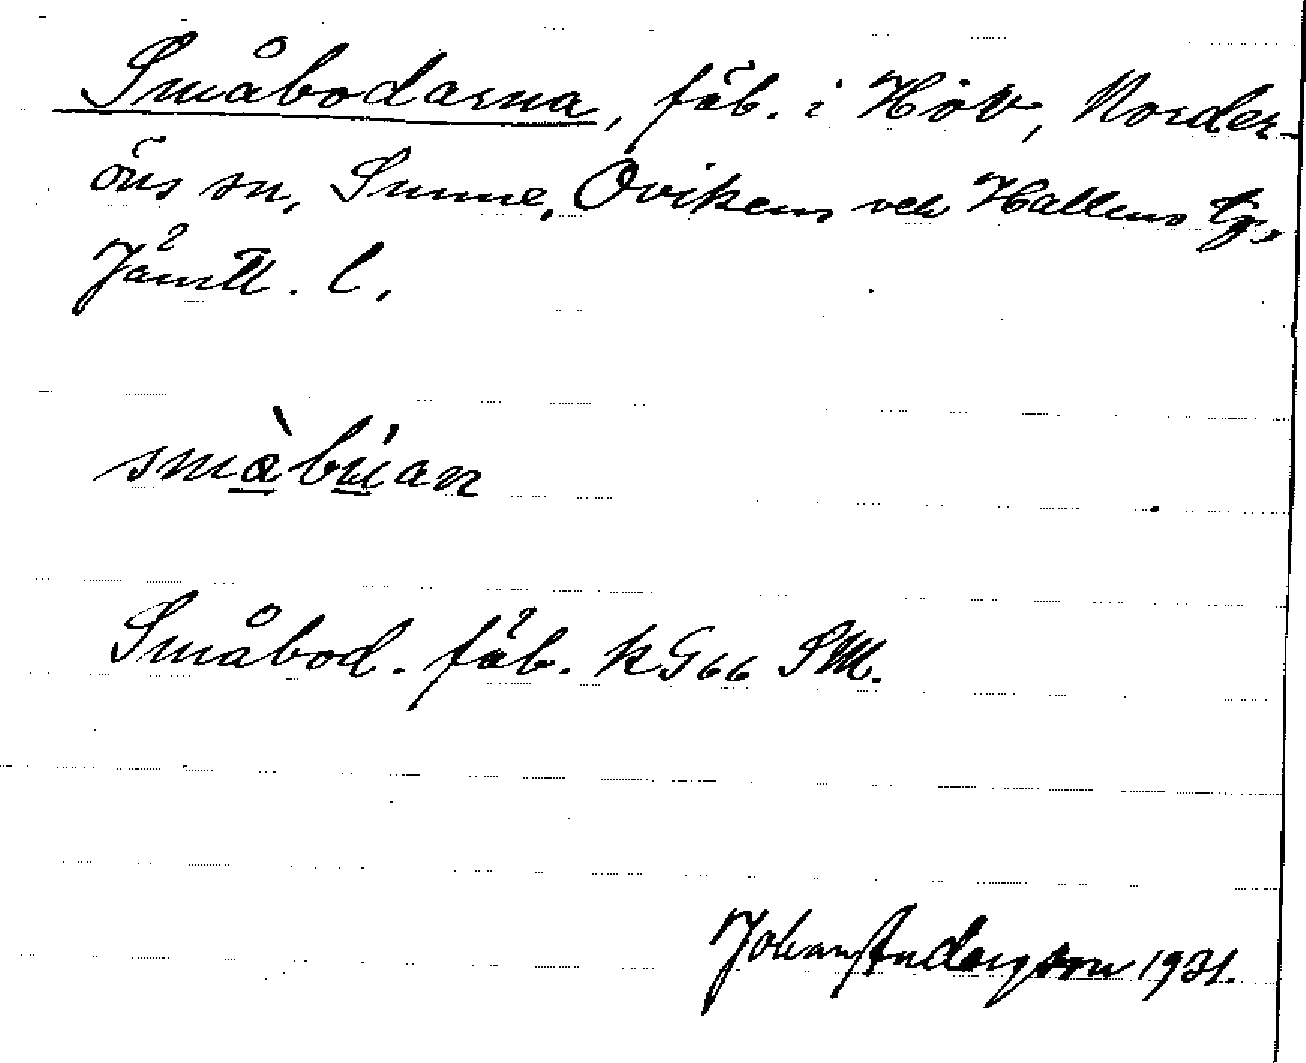 Småbodarna, fäb. i Höv, Norder-
öns sn, Sunne, Ovikens och Hallens tg,
Jämtl. l.
småbúan
Småbod. fäb. KG66 SM.
Johan Anderzson 1931.